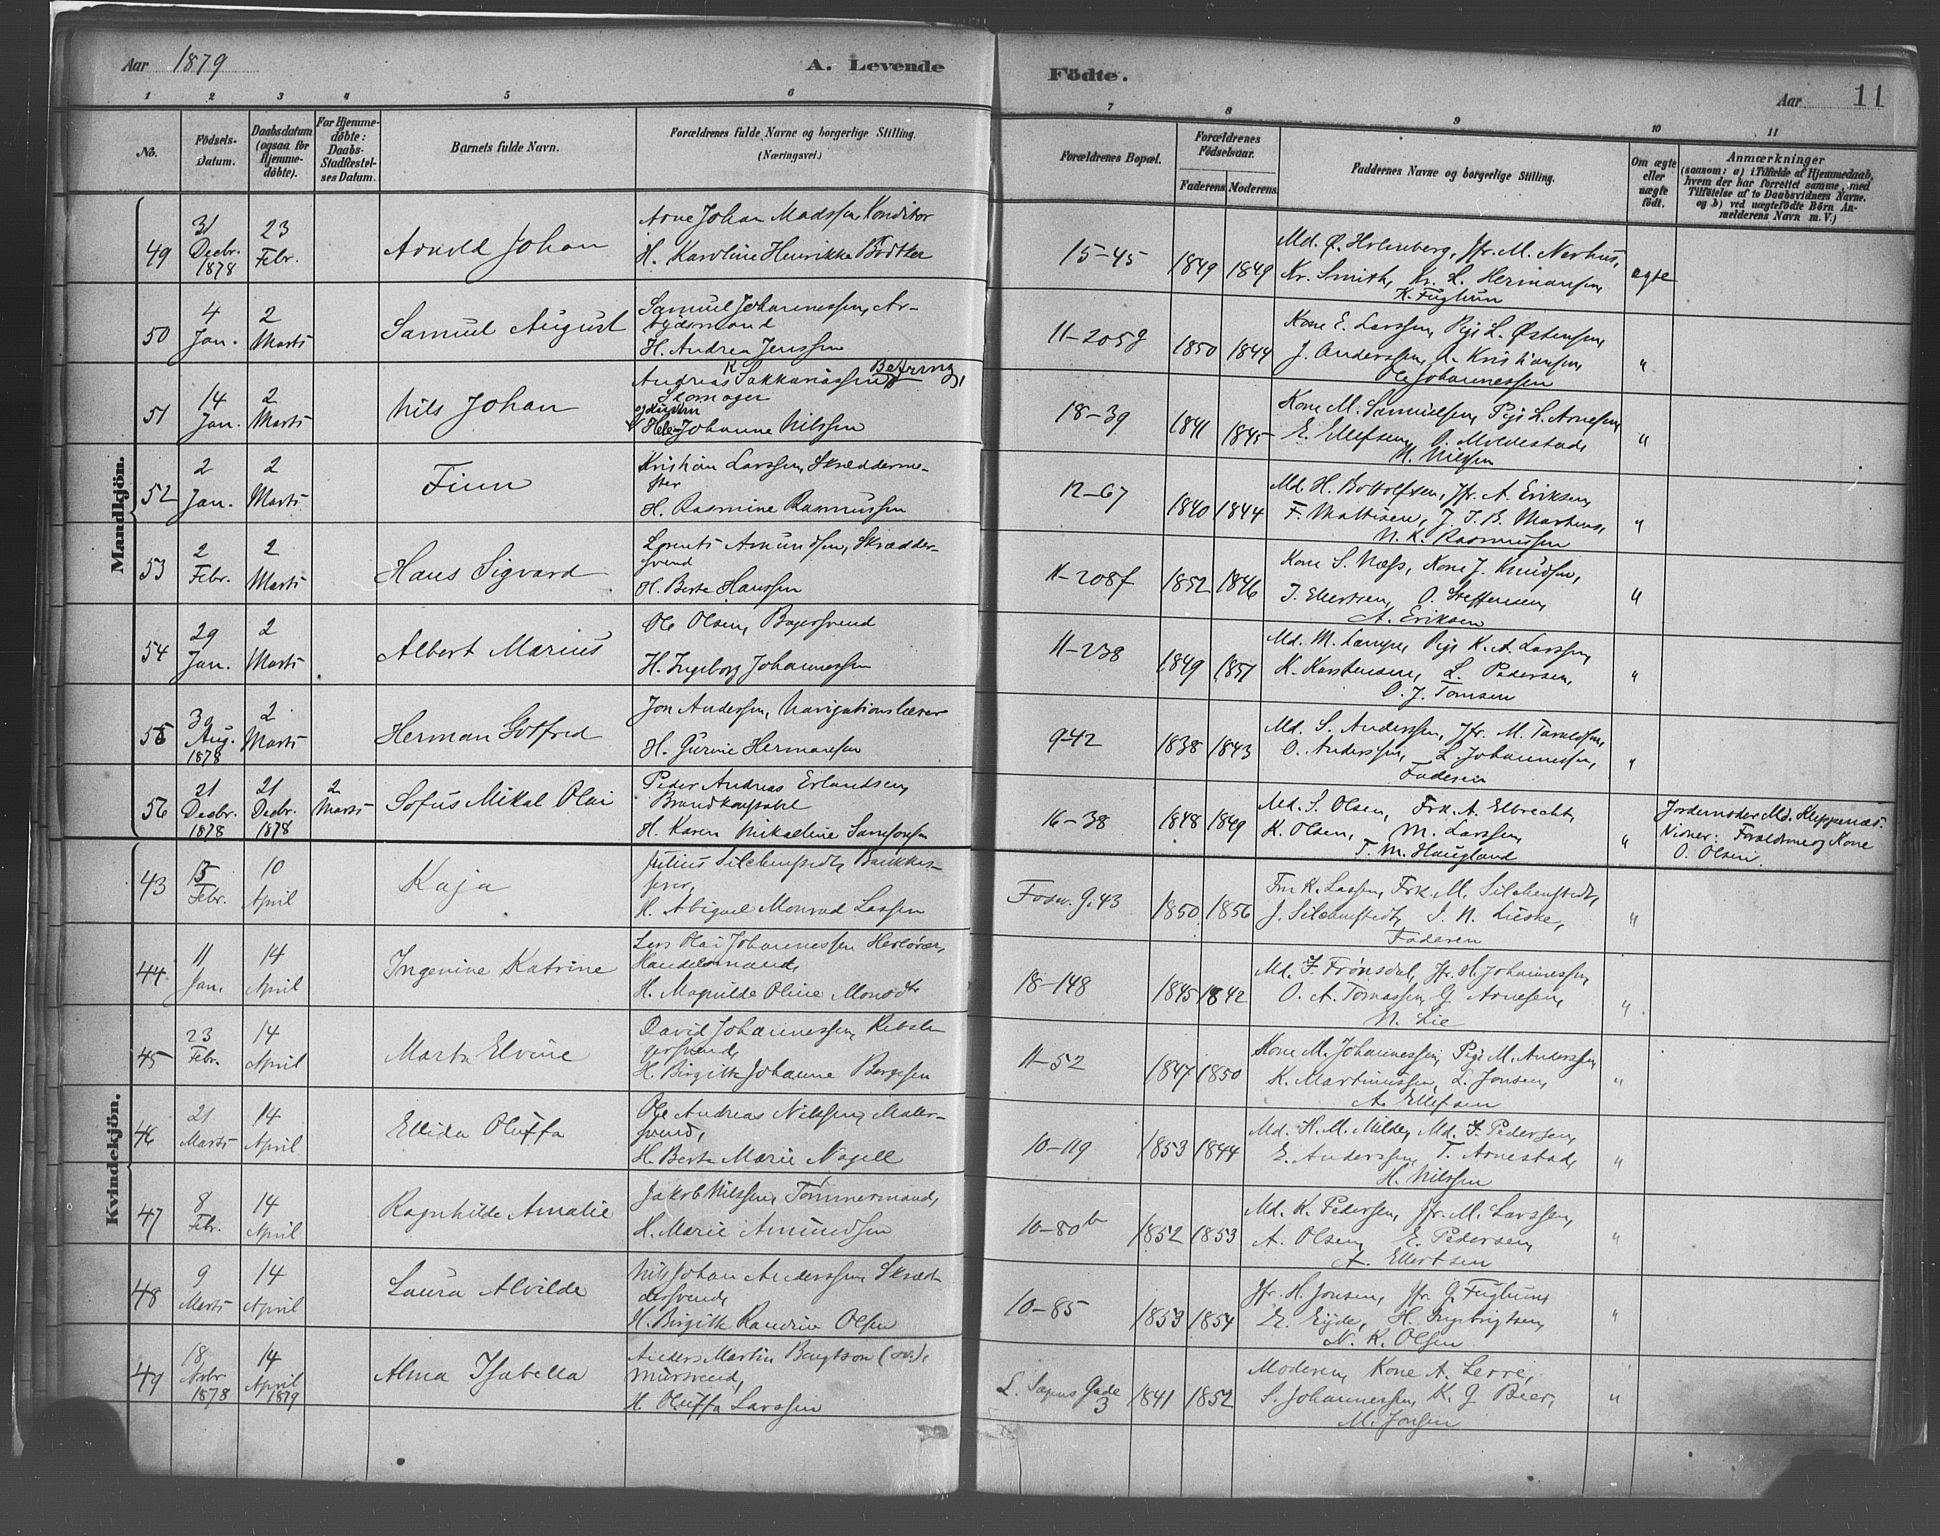 Aar 1879
A. Levende
Födte.
Aar 11
1 2 3 4 5 6 7 8 9 10 11
No.
Födsels-Datum.
Daabsdatum (ogsaa for Hjemme-døbte).
For Hjemme-døbte: Daabs-Stadfæstel-ses Datum.
Barnets fulde Navn.
Forældrenes fulde Navne og borgerlige Stilling.
(Næringsvei.)
Forældrenes Bopæl.
Forældrenes Födselsaar.
Faderens. Moderens.
Faddernes Navne og borgerlige Stilling.
Om ægte eller uægte født.
Anmærkninger
(saasom: a) i Tilfælde af Hjemmedaab, hvem der har forrettet samme, med Tilføielse af to Daabsvidners Navne. og b) ved uægtefødte Børn An-melderens Navn m. V.)
Mandkjön.
49 31 Decbr. 1878 23 Febr. Arnold Johan
Arne Johan Madssen, Konditor
H. Karoline Henrikke Bödtker
15-45 1849 1849
Md. Ø. Holmberg, Jfr. M. Nerhus,
Kr. Smith, Kr. L. Hermansen,
K. Fuglum
ægte
50 4 Jan. 2 Marts Samuel August
Samuel Johannessen, Ar-
bejdsmand
H. Andrea Jenssen
11-205g 1850 1844
Kone E. Larssen, Pige L. Østensen,
J. Anderssen, A. Kristiansen,
Ole Johannessen
"
51 14 Jan. 2 Marts Nils Johan
Andreas K Sakkariassen Befring,
Skomager
Helene Johanne Nilssen
18-39 1841 1845
Kone M. Samuelsen, Pige L. Arnesen,
E. Ellefsen, O. Moldestad,
N. Nilssen
"
52 2 Jan. 2 Marts Finn
Kristian Larssen, Skrædderme-
ster
H. Rasmine Rasmussen
12-67 1840 1844
Md. H. Bottolfsen, Jfr. A. Eriksen,
F. Mattisen, J. J. B. Martens,
N. K. Rasmussen
"
53 2 Febr. 2 Marts Hans Sigvard
Lorents Amundsen, Skrædder-
svend
H. Berte Hanssen
11-208f 1852 1846
Kone S. Næss, Kone J. Knudsen,
J. Ellertsen, O. Steffensen,
A. Eriksen
"
54 29 Jan. 2 Marts Albert Marius
Ole Olsen, Bagersvend
H. Ingeborg Johannessen
11-238 1849 1851
Md. M. Lampe, Pige K. A. Larssen,
K. Karstensen, L. Pedersen,
O. J. Tomsen
"
55 30 Aug. 1878 2 Marts Herman Gotfred
Jon Anderssen, Navigationslærer
H. Gurine Hermansen
9-42 1838 1843
Md. S. Anderssen, Jfr. M. Taraldsen,
O. Anderssen, L. Johannessen,
Faderen
"
56 21 Decbr. 1878 21 Decbr. 1878 2 Marts Sofus Mikal Olai
Peder Andreas Erlandsen,
Brandkonstabel
H. Karen Mikaeline Samsonsen
16-38 1848 1849
Md. S. Olsen, Frk. A. Elbrecht,
K. Olsen, M. Larssen,
T. M. Haugland
"
Jordemoder Md. Kleppenæs.
Vidner: Forældrene og Kone
O. Olsen.
Kvindekjön.
43 Febr. 10 April Kaja
Julius Silchenstedt,
H. Abigael Monrad Lassen
Fosw. G. 43 1850 1856
Fru K. Lassen, Frk. M. Silchenstedt,
J. Silchenstedt, S. N. Lieske,
Faderen
"
44 11 Jan. 14 April Ingevine Katrine
Lars Olai Johannessen Herløvær,
Handelsmand,
H. Magnilde Oline Monsdtr
18-148 1845 1842
Md. J. Frønsdal, Jfr. H. Johannessen
O. A. Tomassen, G. Arnesen,
N. Lie
"
45 23 Febr. 14 April Marta Elvine
David Johannessen, Rebsla-
gersvend,
H. Birgitte Johanne Børgesen
11-52 1847 1850
Kone M. Johannessen, Pige M. Anderssen,
K. Martinussen, L. Jonsen,
A. Ellefsen
"
46 21 Marts 14 April Ellida Oluffa
Ole Andreas Nilssen, Maler-
svend,
H. Berte Marie Nagell
10-119 1853 1844
Md. H. M. Milde, Md. J. Pedersen,
E. Anderssen, T. Arnestad,
H. Nilssen
"
47 8 Febr. 14 April Ragnhilde Amalie
Jakob Nilssen, Tömmermand,
H. Marie Amundsen
10-80b 1852 1853
Md. K. Pedersen, Jfr. M. Larssen,
A. Olsen, E. Pedersen,
A. Ellertsen
"
48 9 Marts 14 April Laura Alvilde
Nils Johan Anderssen, Skræd-
dersvend,
H. Birgitte Randine Olsen
10-85 1853 1854
Jfr. H. Jonsen, Jfr. G. Fuglum,
Eide, H. Ingebrigtsen,
N. K. Olsen
"
49 18 Novbr 1878 14 April 1879 Alma Isabella
Anders Martin Bengtson (sv.),
Mursvend,
H. Oluffa Larssen
L. Sagens Gade 3 1841 1852
Moderen, Kone A. Lerre,
S. Johannessen, K. G. Beer,
M. Jonsen
"